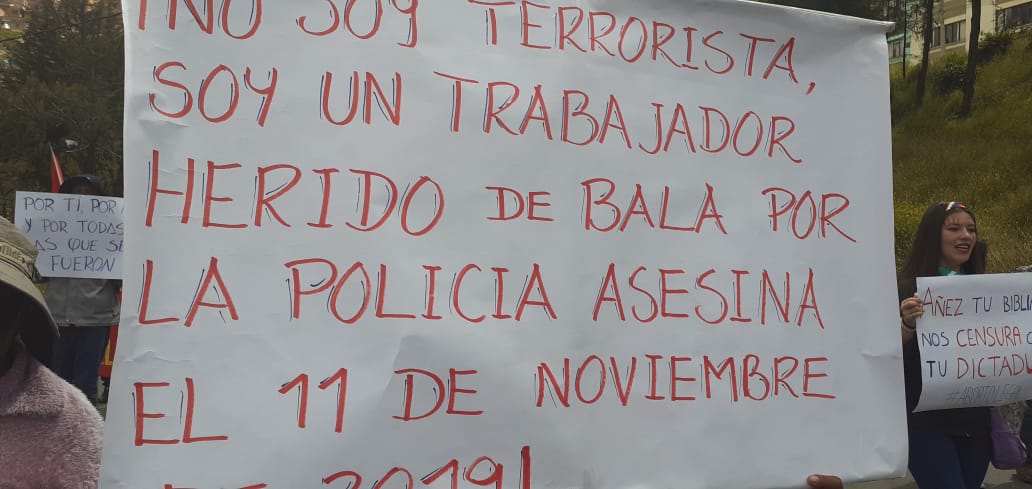 ¡NO SOY TERRORISTA,
SOY UN TRABAJADOR
HERIDO DE BALA POR
LA POLICIA ASESINA
EL 11 DE NOVIEMBRE
DE 2019!
POR TI, POR
Y POR TODAS
AS QUE SE
FUERON
AÑEZ TU BIBLI
NOS CENSURA
TU DICTADU